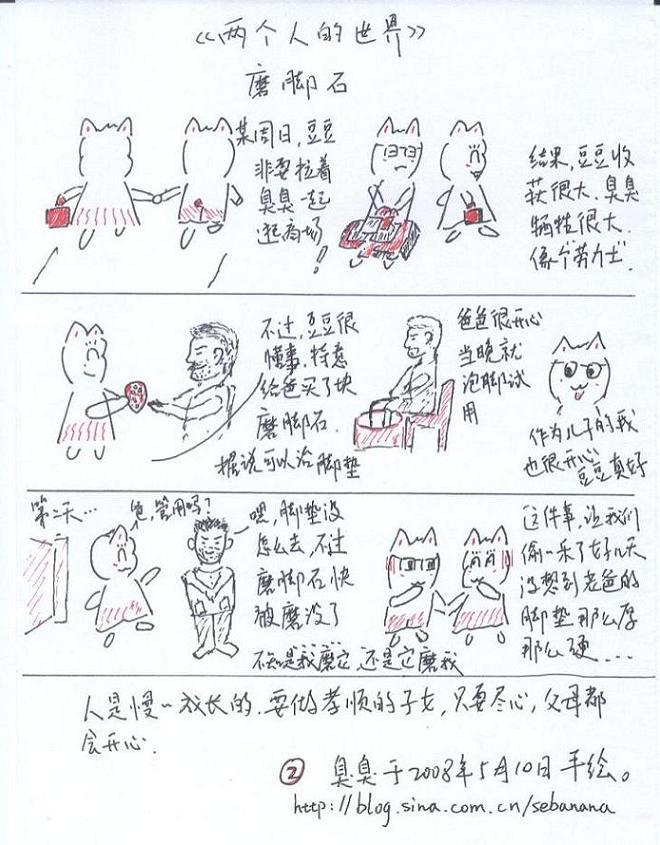 《两个人的世界》
磨脚石
某周日,豆豆
非要拉着
臭臭一起
逛商场!
结果,豆豆收
获很大.臭臭
牺牲很大.
像个"劳力士".
不过,豆豆很
懂事.特意
给爸买了块
磨脚石.
据说可以治脚垫
爸爸很开心
当晚就
泡脚试
用
作为儿子的我
也很开心
豆豆真好
第二天...
爸,管用吗?
嘿,脚垫没
怎么去,不过
磨脚石快
被磨没了
不知是我磨它,还是它磨我
这件事,让我们
偷乐了好几天
没想到老爸的
脚垫那么厚
那么硬....
人是慢慢成长的.要做孝顺的子女,只要尽心,父母都
会开心.
② 臭臭于2008年5月10日手绘。
http://blog.sina.com.cn/sebanana